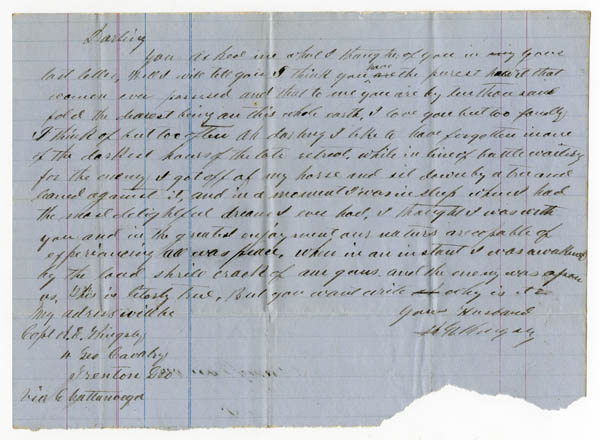 Darling
You asked me what I thought of you in your
last letter, Well I will tell you I think you have the purest heart that
woman ever possesed and that to me you are by ten thousand
fold the dearest being on this whole earth, I love you but too fondly
I think of but too often Oh darling I like to have forgotten in one
of the darkest hours of the late retreat, while in line of battle waiting
for the enemy I got off of my horse and set down by a tree and
leaned against it, and in a moment I was in sleep when I had
the most delightful dream I ever had, I thought I was with
you and in the greatest enjoyment our natures are capable of
experiencing all was peace, when in an instant I was awakened
by the loud shrill crack of our guns, and the enemy was upon
us, This is literly true, But you wont write why is it
My adress will be Your Husband
Capt
4 Geo Cavalry
Trenton Geo
Via Chattanooga